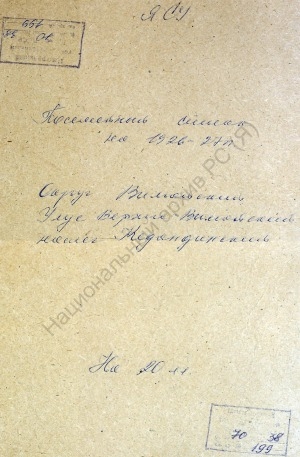 ЯСУ
Посемейный список
на 1926-27г.
Округ Вилюйский
Улус Верхне Вилюйский
наслег Кедандинский
Национальный архив РС (Я)
На 20 лл.
70 38
199